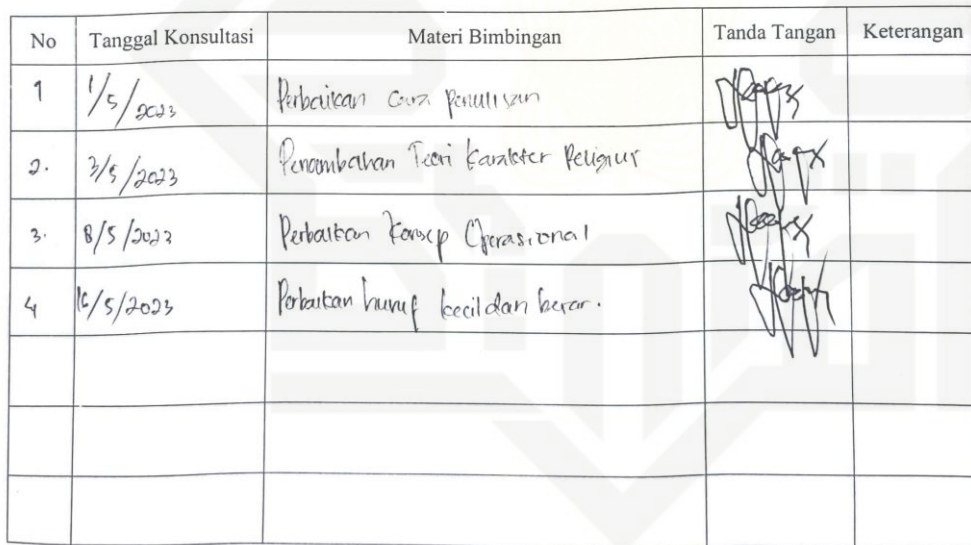 No Tanggal Konsultasi Materi Bimbingan Tanda Tangan Keterangan
1 1/5/2023 Perbaikan cara penulisan
2. 3/5/2023 Penambahan Teori karakter Religius
3. 8/5/2023 Perbaikan Konsep Operasional
4 16/5/2023 Perbaikan huruf kecil dan besar.